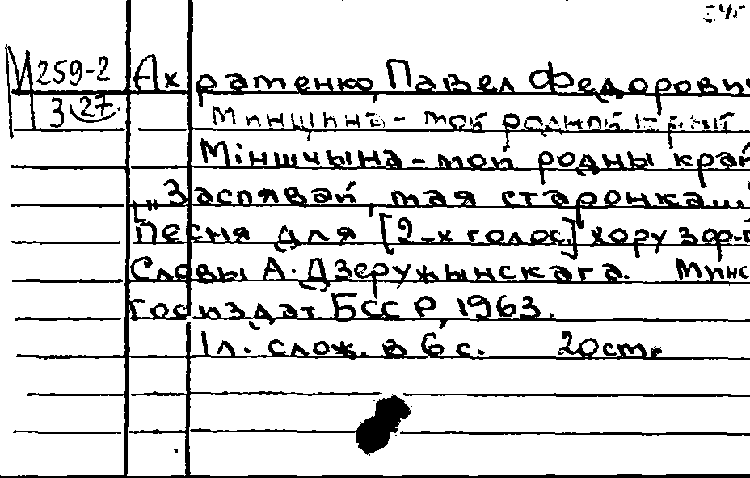 М259-2
З 27.
Ахратенко, Павел Федорович
Минщина - мой родной край
Мiншчына - мой родны край
"Заспявай, мая старонка..."
Песня для [2-х голос.] хору з ф-п
Словы А. Дзеружынскага. Минс
Госиздат БССР, 1963.
1 л. слож. в 6 с. 20 cm.